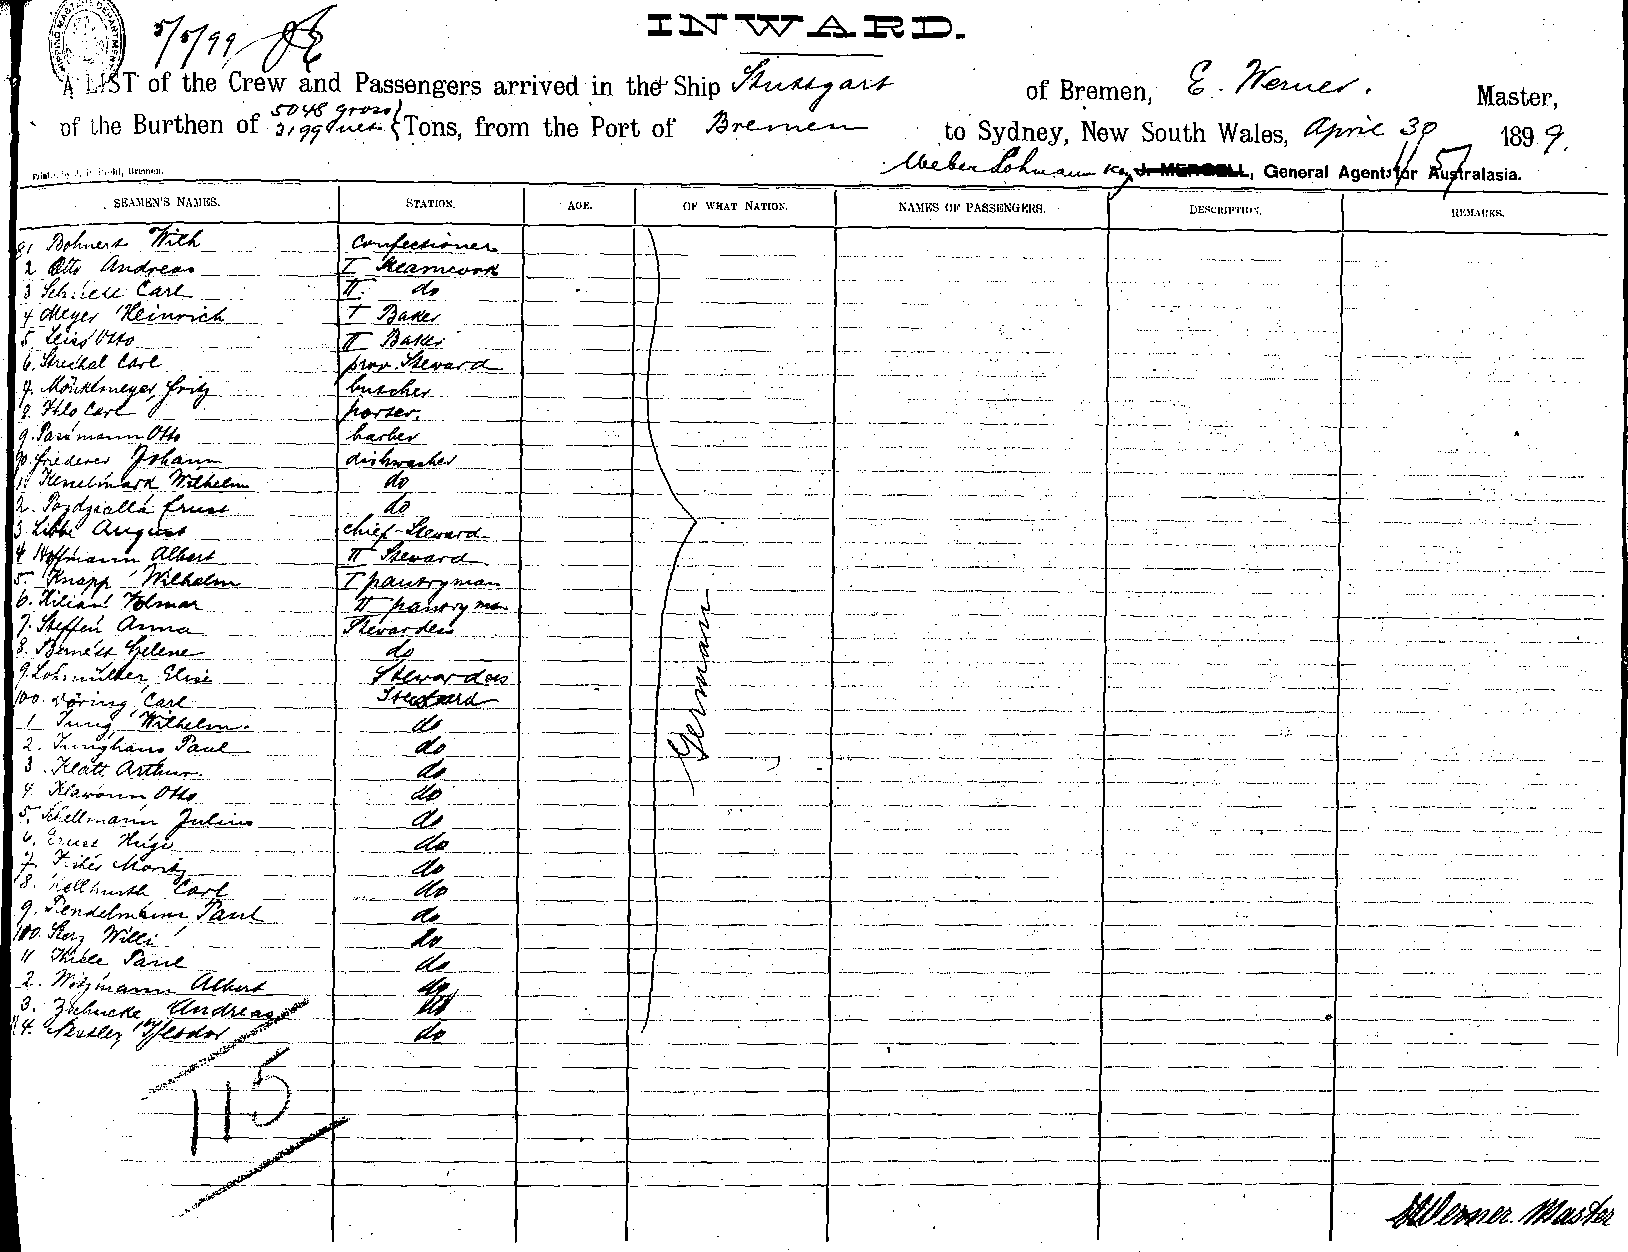 INWARD.
5/5/99
A LIST of the Crew and Passengers arrived in the Ship Stuttgart of Bremen, E. Werner. Master,
5048 gross
of the Burthen of 3199 nett Tons, from the Port of Bremen to Sydney, New South Wales, April 30 1899.
Weber Lohmann & Co J. MERGELL, General Agents for Australasia.
SEAMEN'S NAMES. STATION. AGE. OF WHAT NATION. NAMES OF PASSENGERS. DESCRIPTION. REMARKS.
81 Bohnert Wilh confectioner
2 Otto Andreas I
3 Carl II do
4 Meyer Heinrich I Baker
5 Otto II Baker
6. Carl prov. Steward
7. Fritz butcher
8. Carl porter.
9. Otto barber
90. Johann dishwasher
1. Wilhelm do
2. Ernst do
3 August chief Steward
4 Hoffmann Albert II Steward
5 Knapp Wilhelm I pantryman
6. Kilian Volmar II pantryman
7. Steffen Anna Stewardess
8. Helene do
9. Elise Stewardess
100. Döring Carl Steward
1 Jung Wilhelm. do
2. Junghans Paul do
3. Klatt Arthur. do
4. Klawonn Otto do
5. Schellmann Julius do
6. Hugo do
7. Moritz do
8. Carl do
9. Pendelmann Paul do
100. Willi do
11 Thiele Paul do
2. Witzmann Albert do
3. Andreas do
114. Theodor do
German
115
E Werner. Master